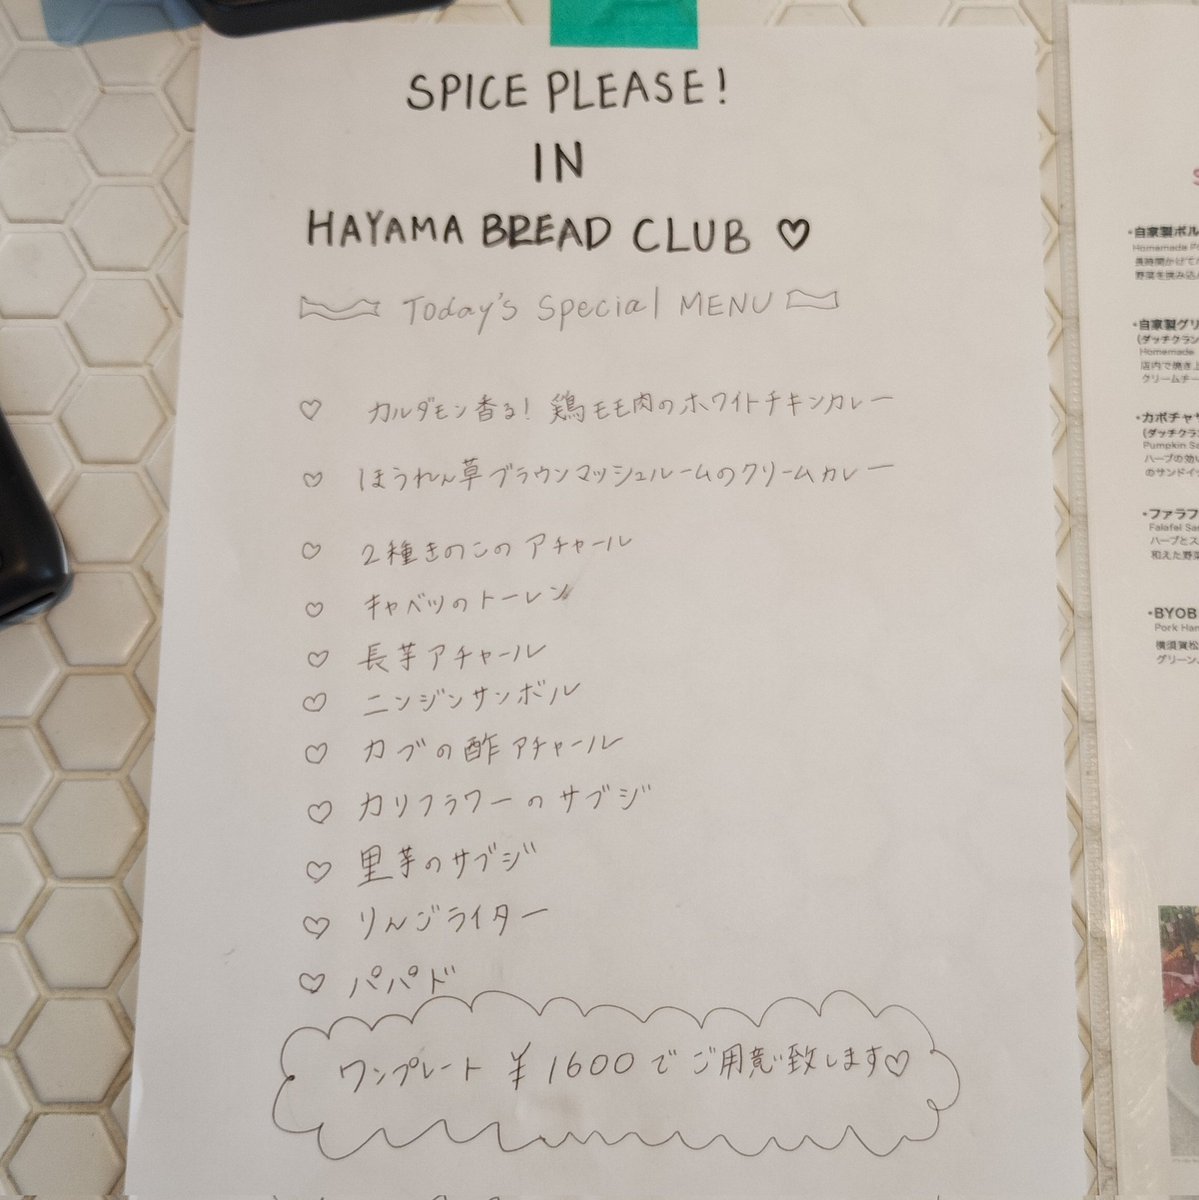 SPICE PLEASE!
IN
HAYAMA BREAD CLUB ♡
Today's Special MENU
♡ カルダモン香る!鶏モモ肉のホワイトチキンカレー
♡ ほうれん草ブラウンマッシュルームのクリームカレー
♡ 2種きのこのアチャール
♡ キャベツのトーレン
♡ 長芋アチャール
♡ ニンジンサンボル
♡ カブの酢アチャール
♡ カリフラワーのサブジ
♡ 里芋のサブジ
♡ りんごライター
♡ パパド
ワンプレート ¥1600でご用意致します♡
・自家製ボル
Homemade
長時間かけて
野菜を挟み込
・自家製グリ
(ダッチクラン
Homemade
店内で焼き上
クリームチー
・カボチャサ
(ダッチクラ
Pumpkin Sa
ハーブの効い
のサンドイッ
・ファラフ
Falafel Sa
ハーブとス
和えた野菜
・BYOB
Pork Han
横須賀松
グリーン